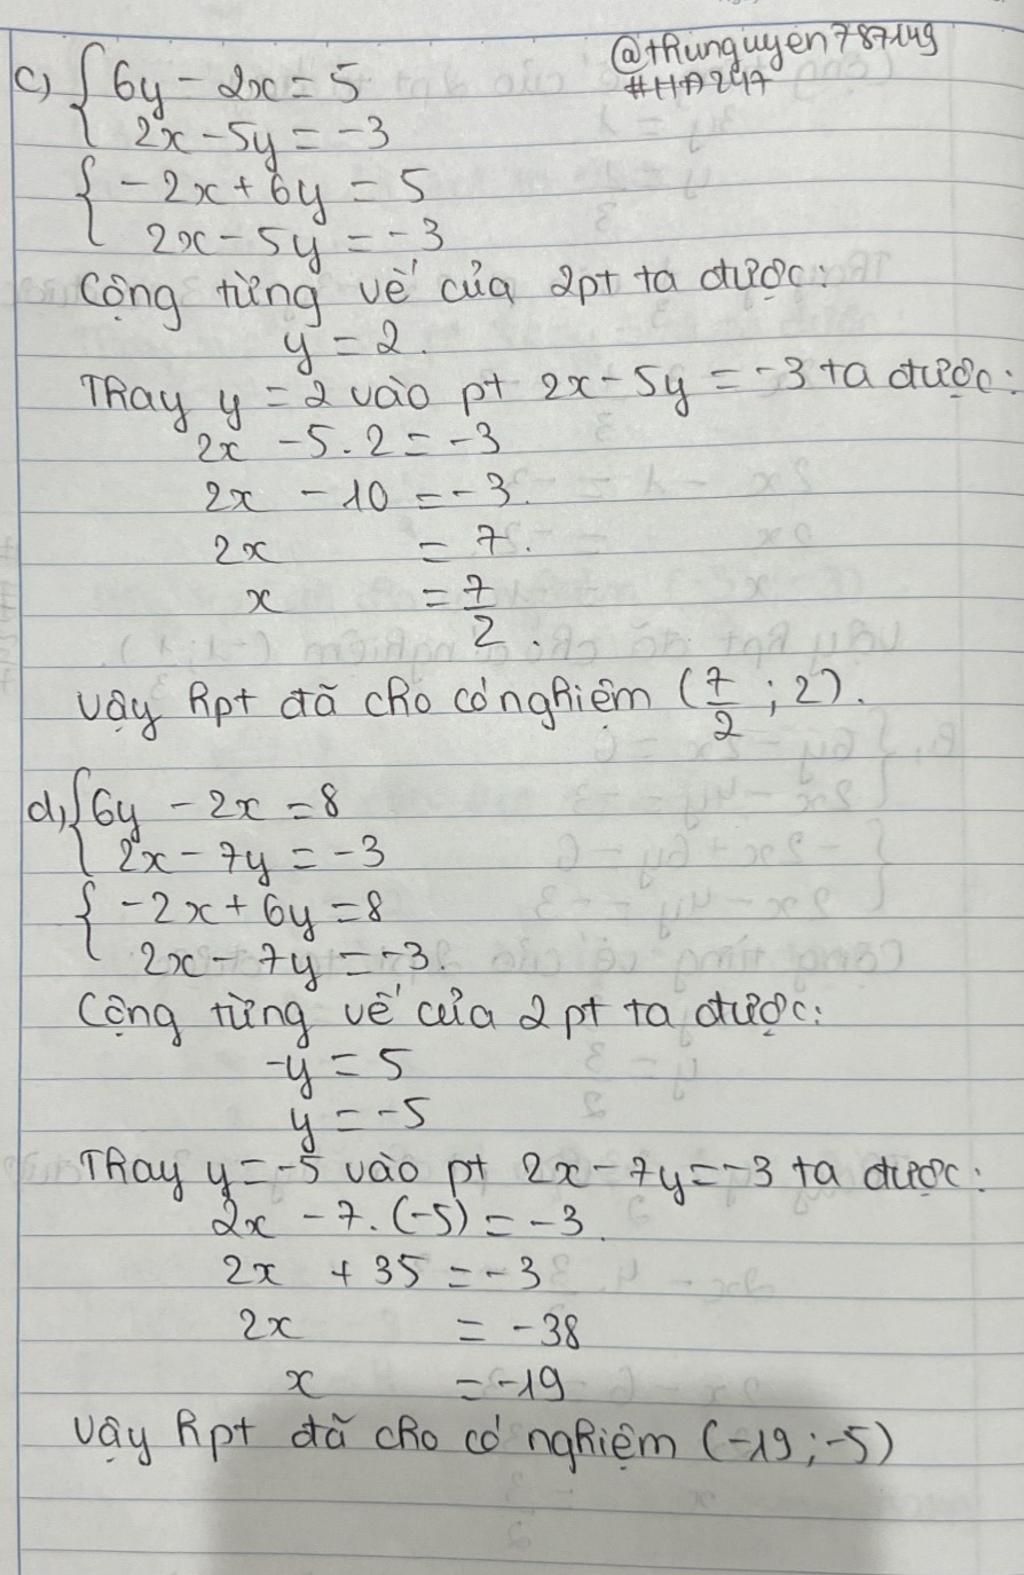 @thunguyen787149
#HD247
c) { 6y - 2x = 5
2x - 5y = -3
{ -2x + 6y = 5
2x - 5y = -3
Cộng từng vế của 2pt ta được:
y = 2.
Thay y = 2 vào pt 2x - 5y = -3 ta được:
2x - 5. 2 = -3
2x - 10 = -3.
2x = 7.
x = 7/2.
Vậy hpt đã cho có nghiệm (7/2 ; 2).
d) { 6y - 2x = 8
2x - 7y = -3
{ -2x + 6y = 8
2x - 7y = -3.
Cộng từng vế của 2pt ta được:
-y = 5
y = -5
Thay y = -5 vào pt 2x - 7y = -3 ta được:
2x - 7. (-5) = -3.
2x + 35 = -3
2x = -38
x = -19
Vậy hpt đã cho có nghiệm (-19 ; -5)